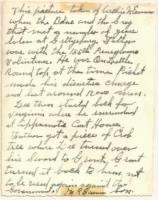 This picture taken of Archie McEwan
when the Blue and the Grey
that met a number of years
later at Gettysburg. He
was with the 155th Pennsylvania
Volunteers. He was on Little
Round top, at the time Pickett
made his disastrous Charge
and lost around men.
Lee then started back for
Virginia where he surrendered
at Appomattox Court House.
Father got a piece of
tree where Lee turned over
his sword to Grant. Grant
turned it back to him not
to be used again against the
Government. son.